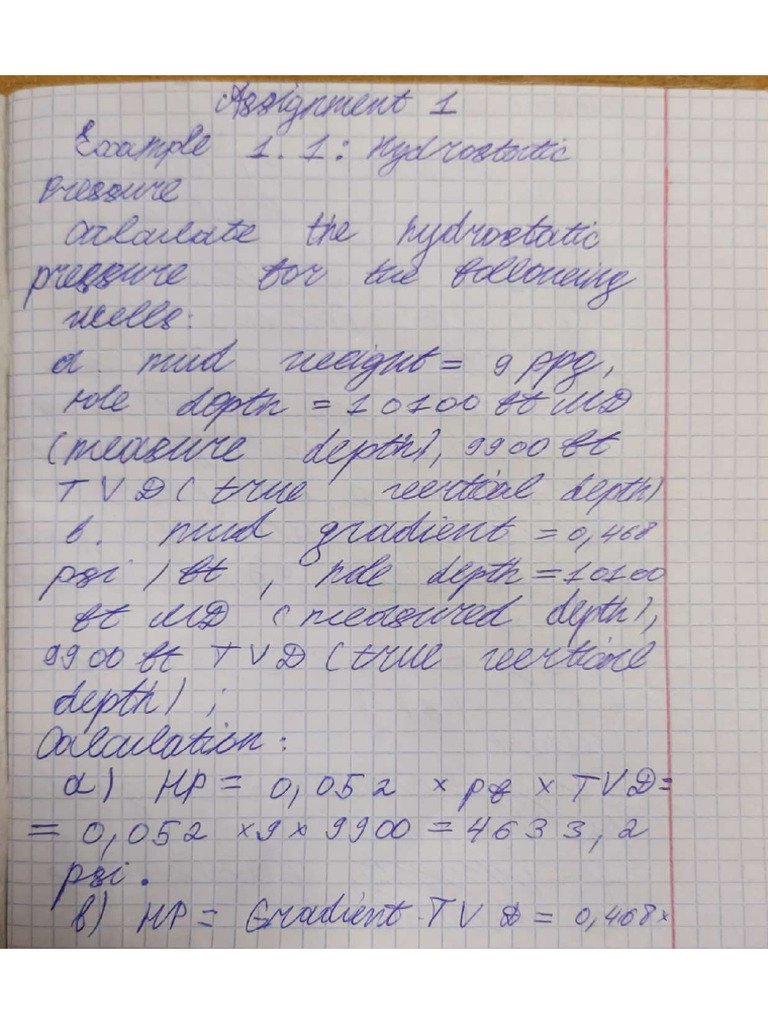 Assignment 1
Example 1.1: Hydrostatic
Pressure
Calculate the hydrostatic
pressure for the following
wells:
a. mud weight = 9 ppg,
hole depth = 10100 ft MD
(measure depth), 9900 ft
TVD (true vertical depth)
b. mud gradient = 0,468
psi / ft, hole depth = 10100
ft MD (measured depth),
9900 ft TVD (true vertical
depth);
Calculation:
a) HP = 0,052 × ρf × TVD =
= 0,052 × 9 × 9900 = 4633,2
psi.
b) HP = Gradient · TVD = 0,468 ×